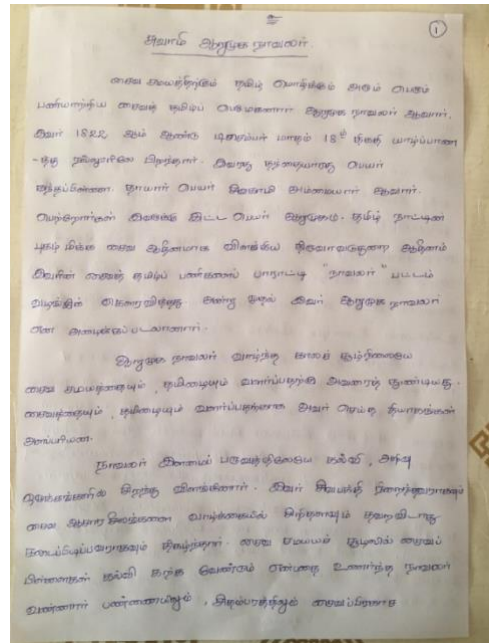 உ
1
சுவாமி ஆறுமுக நாவலர்.
சைவ சமயத்திற்கும் தமிழ் மொழிக்கும் அரும் பெரும்
பணியாற்றிய சைவத் தமிழ்ப் பெருமகனார் ஆறுமுக நாவலர் ஆவார்.
இவர் 1822 ஆம் ஆண்டு டிசம்பர் மாதம் 18ம் திகதி யாழ்ப்பாண
-த்து நல்லூரிலே பிறந்தார். இவரது தந்தையாரது பெயர்
கந்தப்பிள்ளை. தாயார் பெயர் சிவகாமி அம்மையார் ஆவார்.
பெற்றோர்கள் இவருக்கு இட்ட பெயர் ஆறுமுகம். தமிழ் நாட்டின்
புகழ் மிக்க சைவ ஆதீனமாக விளங்கிய திருவாவடுதுறை ஆதீனம்
இவரின் சைவத் தமிழ்ப் பணிகளைப் பாராட்டி "நாவலர்" பட்டம்
வழங்கிக் கௌரவித்தது. அன்று முதல் இவர் ஆறுமுக நாவலர்
என அழைக்கப்படலானார்.
ஆறுமுக நாவலர் வாழ்ந்த காலச் சூழ்நிலையே
சைவ சமயத்தையும், தமிழையும் வளர்ப்பதற்கு அவரைத் தூண்டியது.
சைவத்தையும், தமிழையும் வளர்ப்பதற்காக அவர் செய்த தியாகங்கள்
அளப்பரியன.
நாவலர் இளமைப் பருவத்திலேயே கல்வி, அறிவு
ஒழுக்கங்களில் சிறந்து விளங்கினார். இவர் சிவபக்தி நிறைந்தவராகவும்
சைவ ஆசார சீலங்களை வாழ்க்கையில் சிறிதளவும் தவறவிடாது
கடைப்பிடிப்பவராகவும் திகழ்ந்தார். சைவ சமயம் சூழலில் சைவப்
பிள்ளைகள் கல்வி கற்க வேண்டும் என்பதை உணர்ந்த நாவலர்
வண்ணார் பண்ணையிலும், சிதம்பரத்திலும் சைவப்பிரகாச